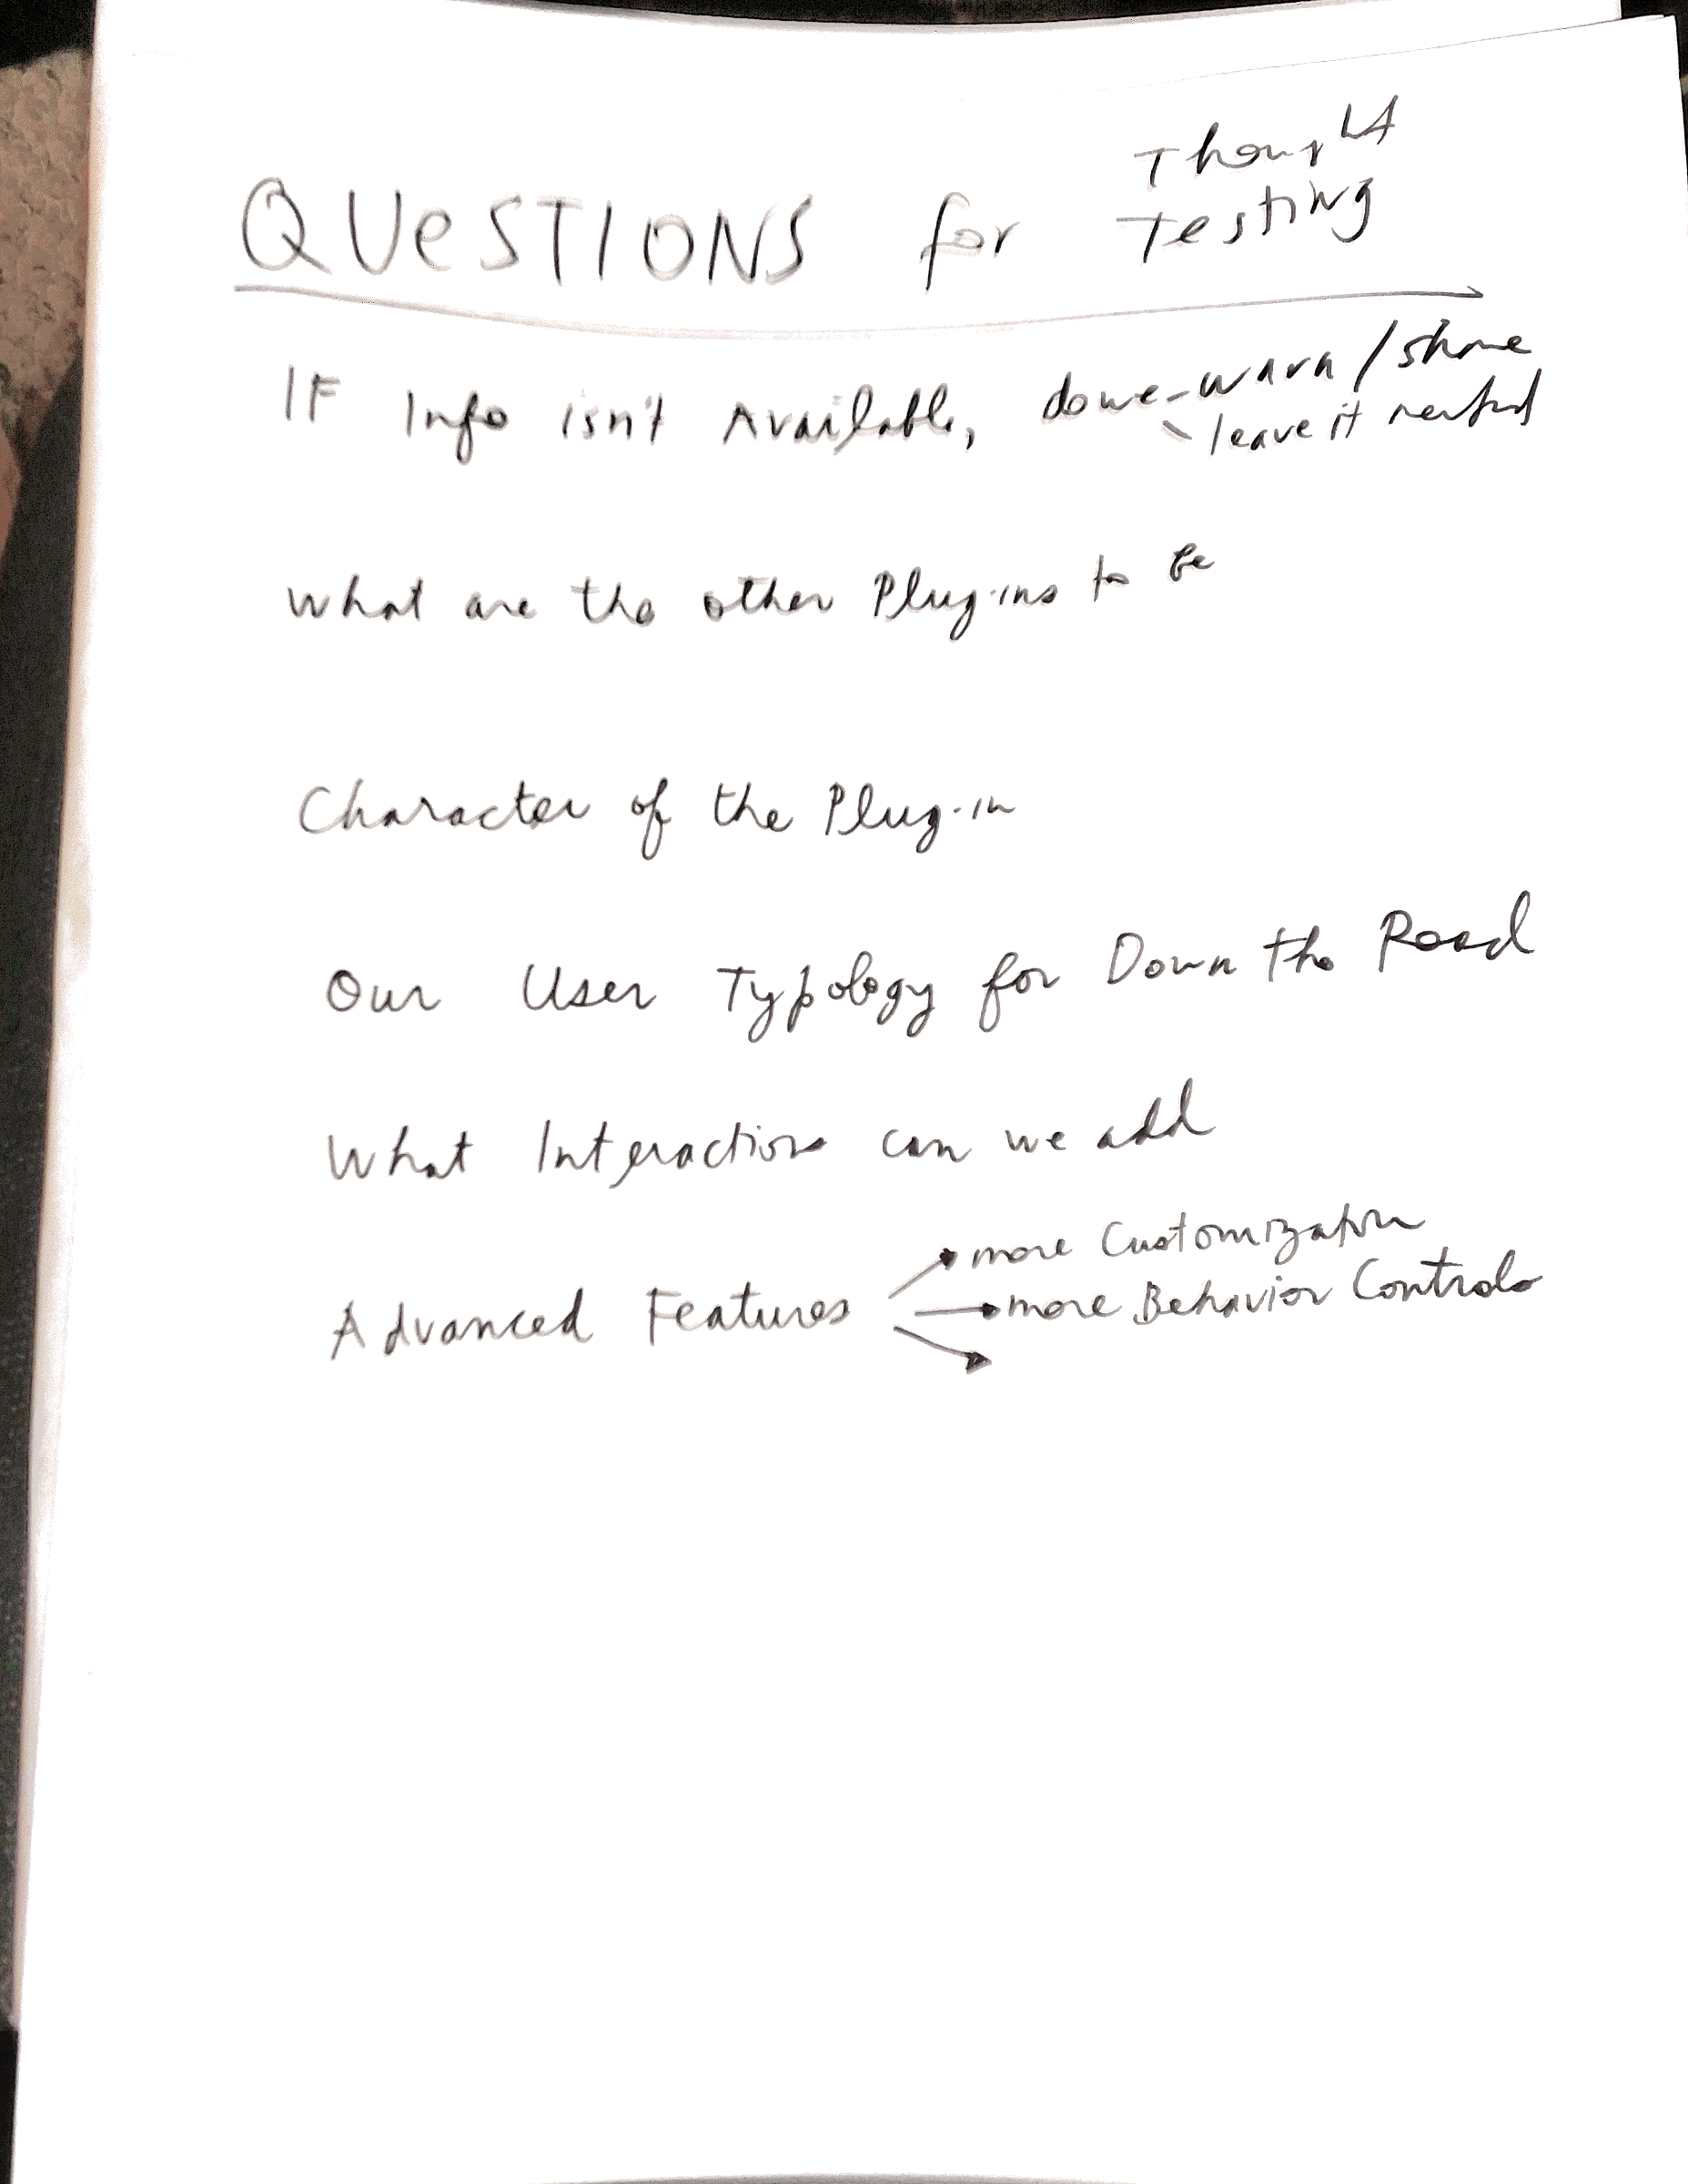 QUESTIONS for Thought Testing
IF Info isn't Available, do we - warn / shame
\ leave it neutral
What are the other Plug-ins to be
Character of the Plug-in
Our User Typology for Down the Road
What Interactions can we add
Advanced Features → more Customization
→ more Behavior Controls
→